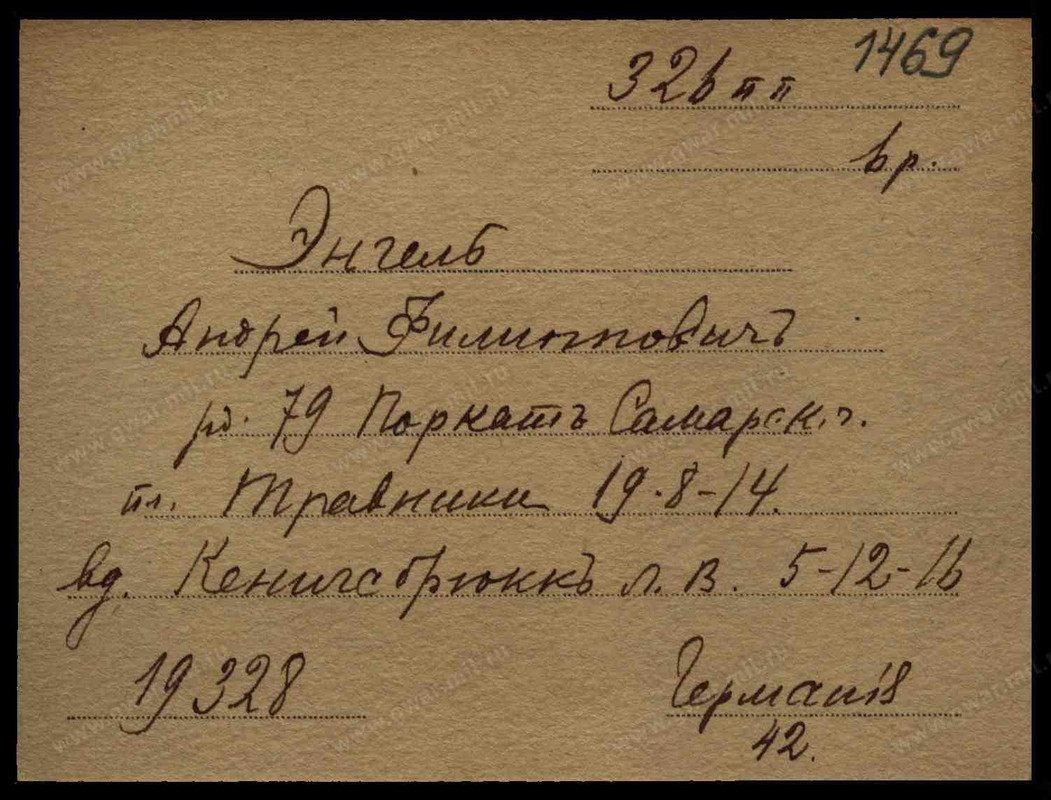 1469
326 пп
вр.
Энгель
Андрей Филипповичъ
рд. 79 Поркатъ Самарск. г.
пл. Травники 19.8-14.
вд. Кенигсбрюккъ л. в. 5-12-16
19328
Германія
42.
www.gwar.mil.ru